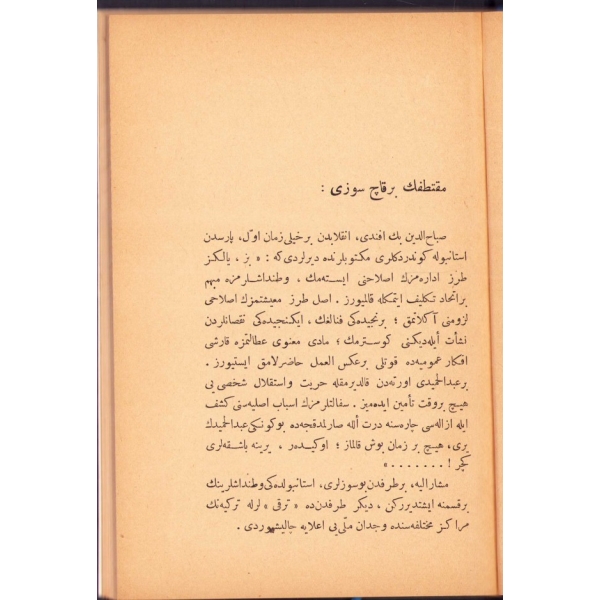 مقتطفك برقاچ سوزی :
صباح‌الدین بك افندی، انقلابدن برخیلی زمان اوّل، پارسدن
استانبوله كوندردكلری مكتوبلرنده دیرلردی كه : « بز ، یالكز
طرز اداره‌مزك اصلاحنی ایسته‌مك ، وطنداشلرمزه مبهم
براتحاد تكلیف ایتمكله قالمیورز . اصل طرز معیشتمزك اصلاحی
لزومنی آكلاتمق ؛ برنجیده‌كی فنالغك ، ایكنجیده‌كی نقصانلردن
نشأت ایله‌دیكنی كوسترمك ؛ مادی معنوی عطالتمزه قارشی
افكار عمومیه‌ده قوتلی برعكس العمل حاضرلامق ایستیورز .
برعبدالحمیدی اورته‌دن قالدیرمقله حریت واستقلال شخصی یی
هیچ بروقت تأمین ایده‌میز . سفالتلرمزك اسباب اصلیه‌سنی كشف
ایله ازاله‌سی چاره‌سنه درت ألله صارلمدقجه‌ده بوكونكی عبدالحمیدك
یری، هیچ بر زمان بوش قالماز ؛ اوكیدەر ، یرینه باشقه‌لری
كچر ! . . . . . . . »
مشارالیه، برطرفدن بوسوزلری، استانبولده‌كی وطنداشلرینك
برقسمنه ایشتدیرركن ، دیكر طرفدن ده « ترقی » لرله تركیه‌نك
مراكز مختلفه‌سنده وجدان ملّی یی اعلایه چالیشیوردی .